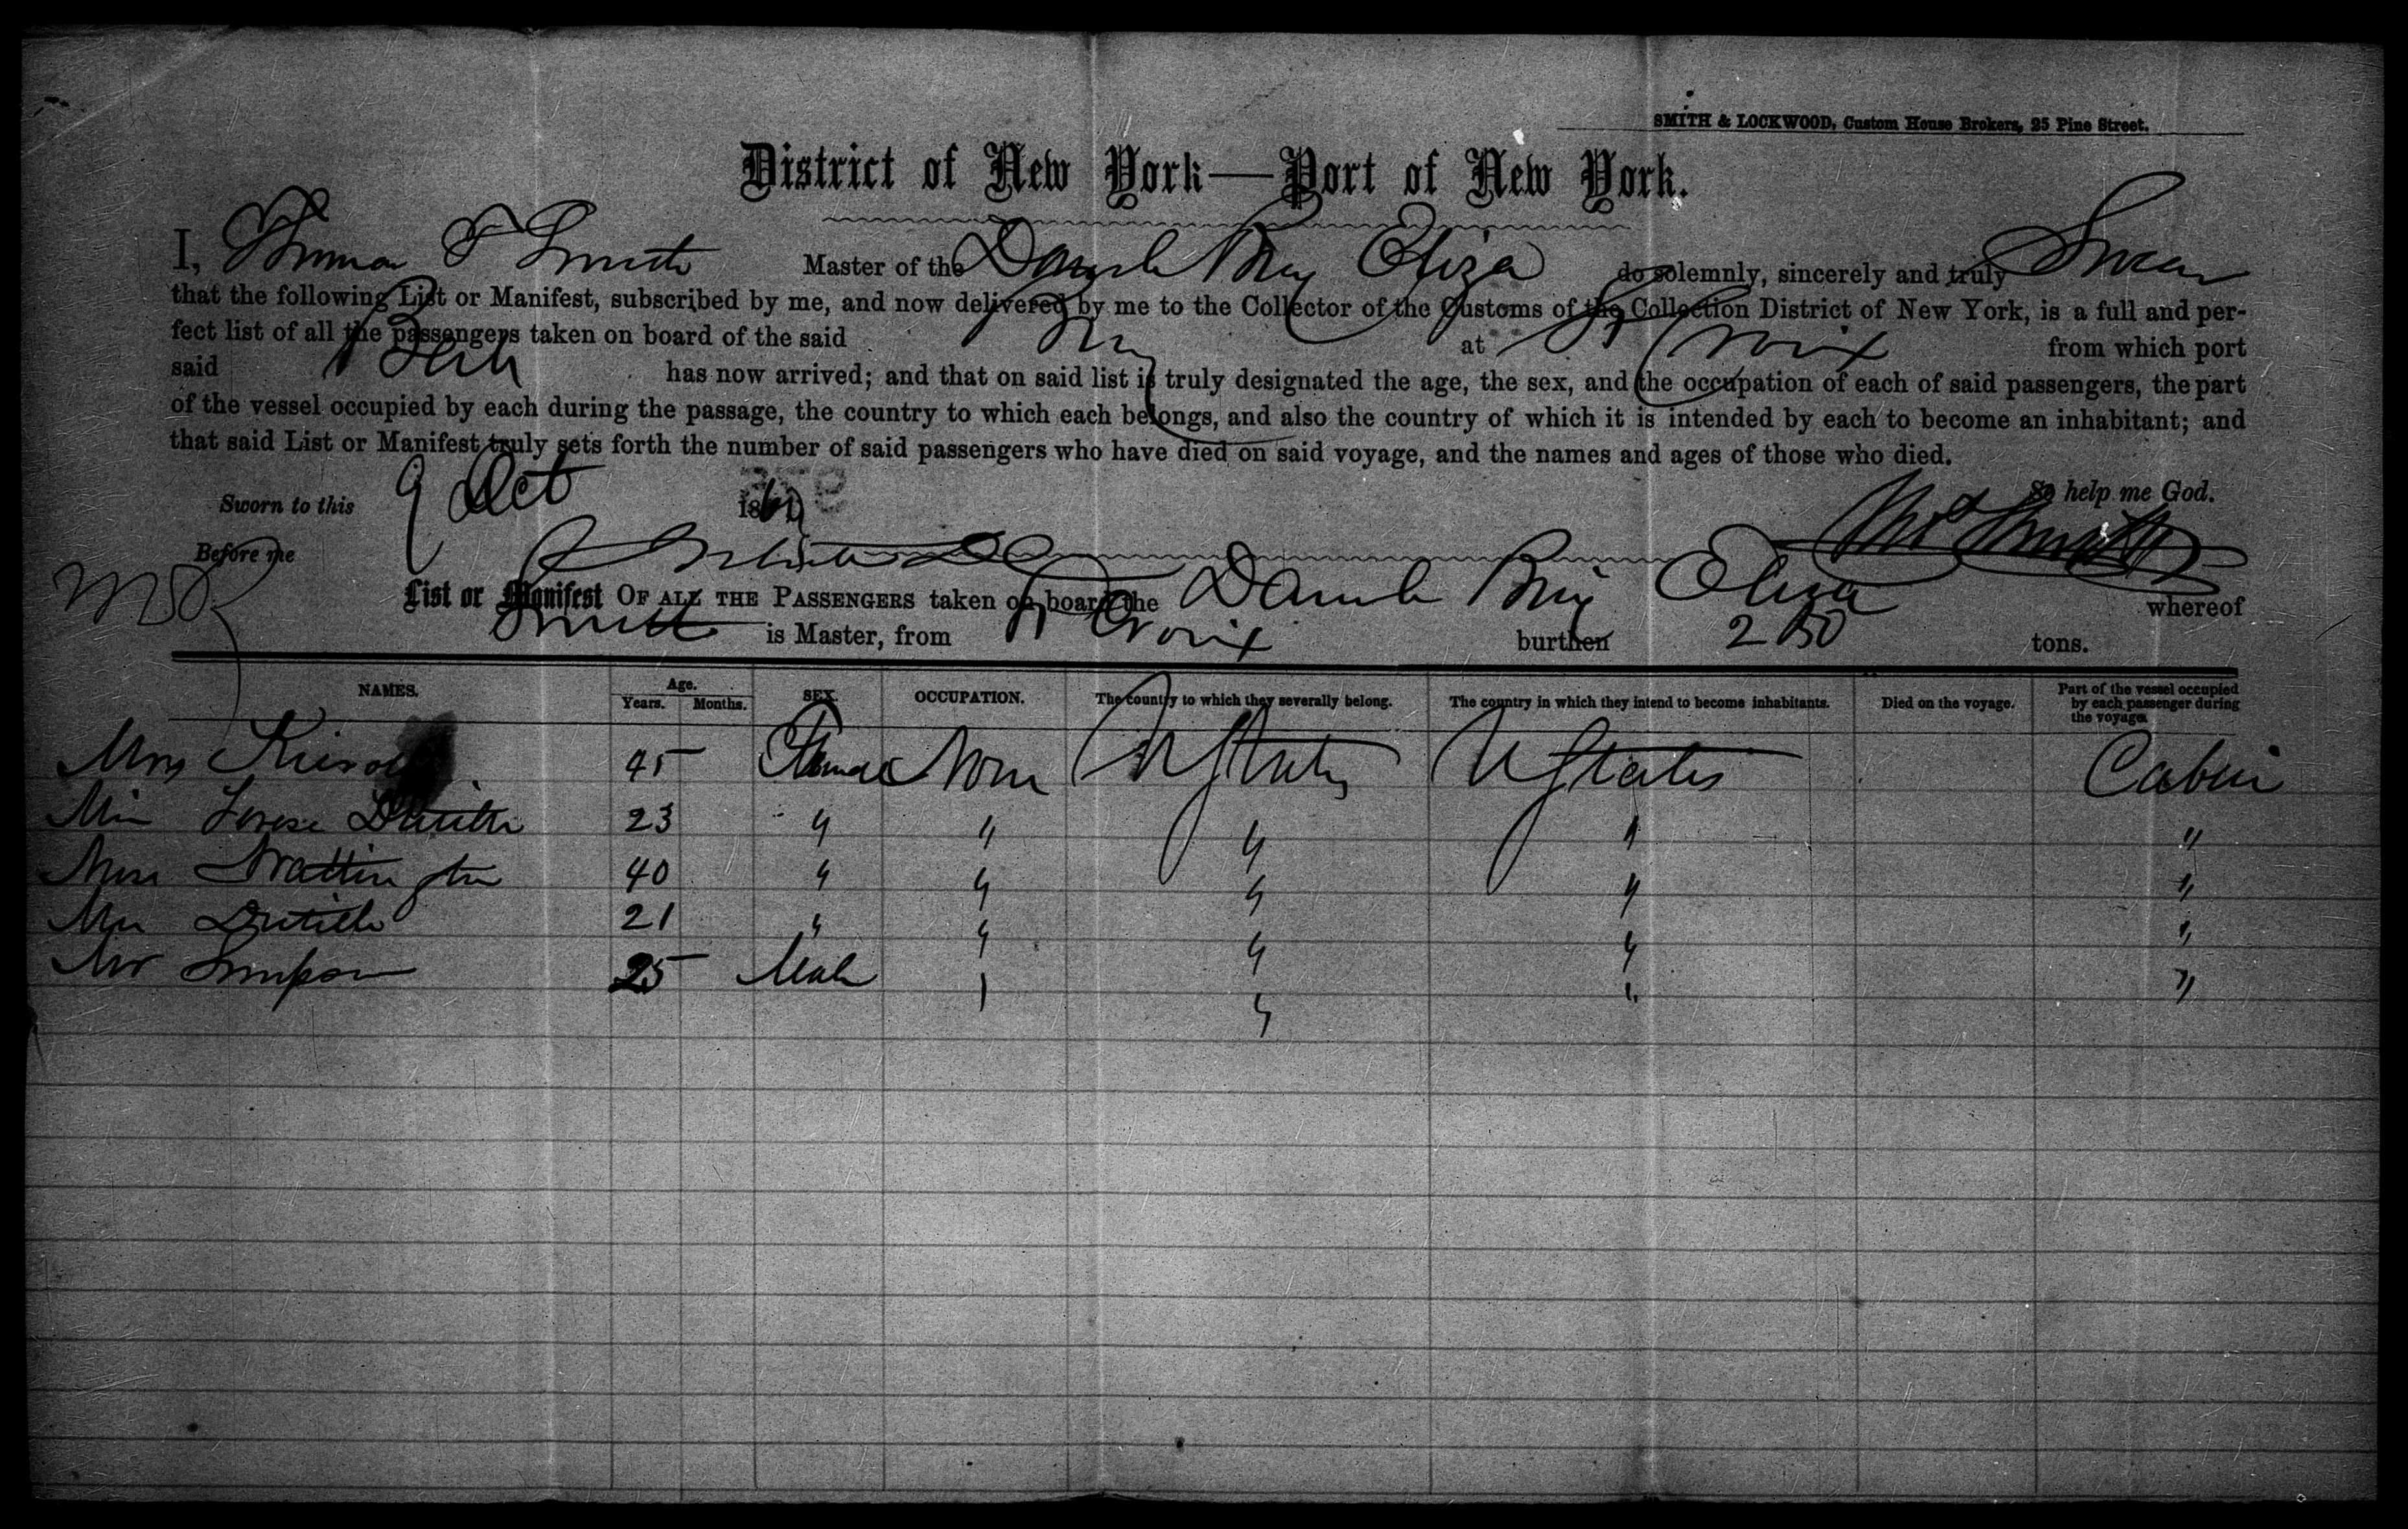 SMITH & LOCKWOOD, Custom House Brokers, 25 Pine Street.
District of New York—Port of New York.
I, Thomas T Smith Master of the Danish Brig Eliza do solemnly, sincerely and truly Swear
that the following List or Manifest, subscribed by me, and now delivered by me to the Collector of the Customs of the Collection District of New York, is a full and per-
fect list of all the Passengers taken on board of the said Brig at St Croix from which port
said has now arrived; and that on said list is truly designated the age, the sex, and the occupation of each of said passengers, the part
of the vessel occupied by each during the passage, the country to which each belongs, and also the country of which it is intended by each to become an inhabitant; and
that said List or Manifest truly sets forth the number of said passengers who have died on said voyage, and the names and ages of those who died.
So help me God.
Sworn to this 9 Oct 186
Before me
List or Manifest OF ALL THE PASSENGERS taken on board the Danish Brig Eliza whereof
Smith is Master, from St Croix burthen 250 tons.
NAMES. Age. Years. Months. SEX. OCCUPATION. The country to which they severally belong. The country in which they intend to become inhabitants. Died on the voyage. Part of the vessel occupied by each passenger during the voyage.
Mrs 45 Female None U States U States Cabin
Miss 23 " " " " "
40 " " " " "
21 " " " " "
Mr Simpson 25 Male " " " "